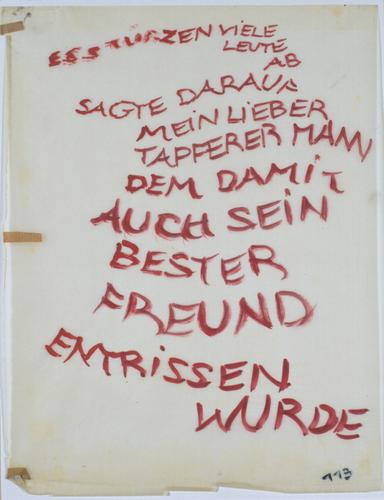 ES STÜRZEN VIELE
LEUTE
AB
SAGTE DARAUF
MEIN LIEBER
TAPFERER MANN
DEM DAMIT
AUCH SEIN
BESTER
FREUND
ENTRISSEN
WURDE
113